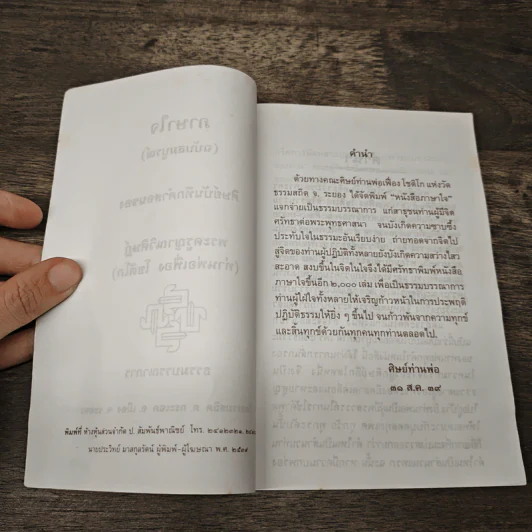 พิมพ์ที่ ห้างหุ้นส่วนจำกัด ป. สัมพันธ์พาณิชย์ โทร.
นายประวิทย์ มาสกุลรัตน์ ผู้พิมพ์-ผู้โฆษณา พ.ศ. ๒๕๓๙
คำนำ
ด้วยทางคณะศิษย์ท่านพ่อเฟื่อง โชติโก แห่งวัด
ธรรมสถิต จ. ระยอง ได้จัดพิมพ์ “หนังสือภาษาใจ”
แจกจ่ายเป็นธรรมบรรณาการ แก่สาธุชนท่านผู้มีจิต
ศรัทธาต่อพระพุทธศาสนา จนบังเกิดความซาบซึ้ง
ประทับใจในธรรมะอันเรียบง่าย ถ่ายทอดจากจิตไป
สู่จิตของท่านผู้ปฏิบัติทั้งหลายยังบังเกิดความสว่างไสว
สะอาด สงบขึ้นในจิตในใจจึงได้มีศรัทธาพิมพ์หนังสือ
ภาษาใจขึ้นอีก ๒,๐๐๐ เล่ม เพื่อเป็นธรรมบรรณาการ
ท่านผู้ใฝ่ใจทั้งหลายให้เจริญก้าวหน้าในการประพฤติ
ปฏิบัติธรรมให้ยิ่ง ๆ ขึ้นไป จนก้าวพ้นจากความทุกข์
และสิ้นทุกข์ด้วยกันทุกคนทุกท่านตลอดไป.
ศิษย์ท่านพ่อ
๓๑ ส.ค. ๓๙